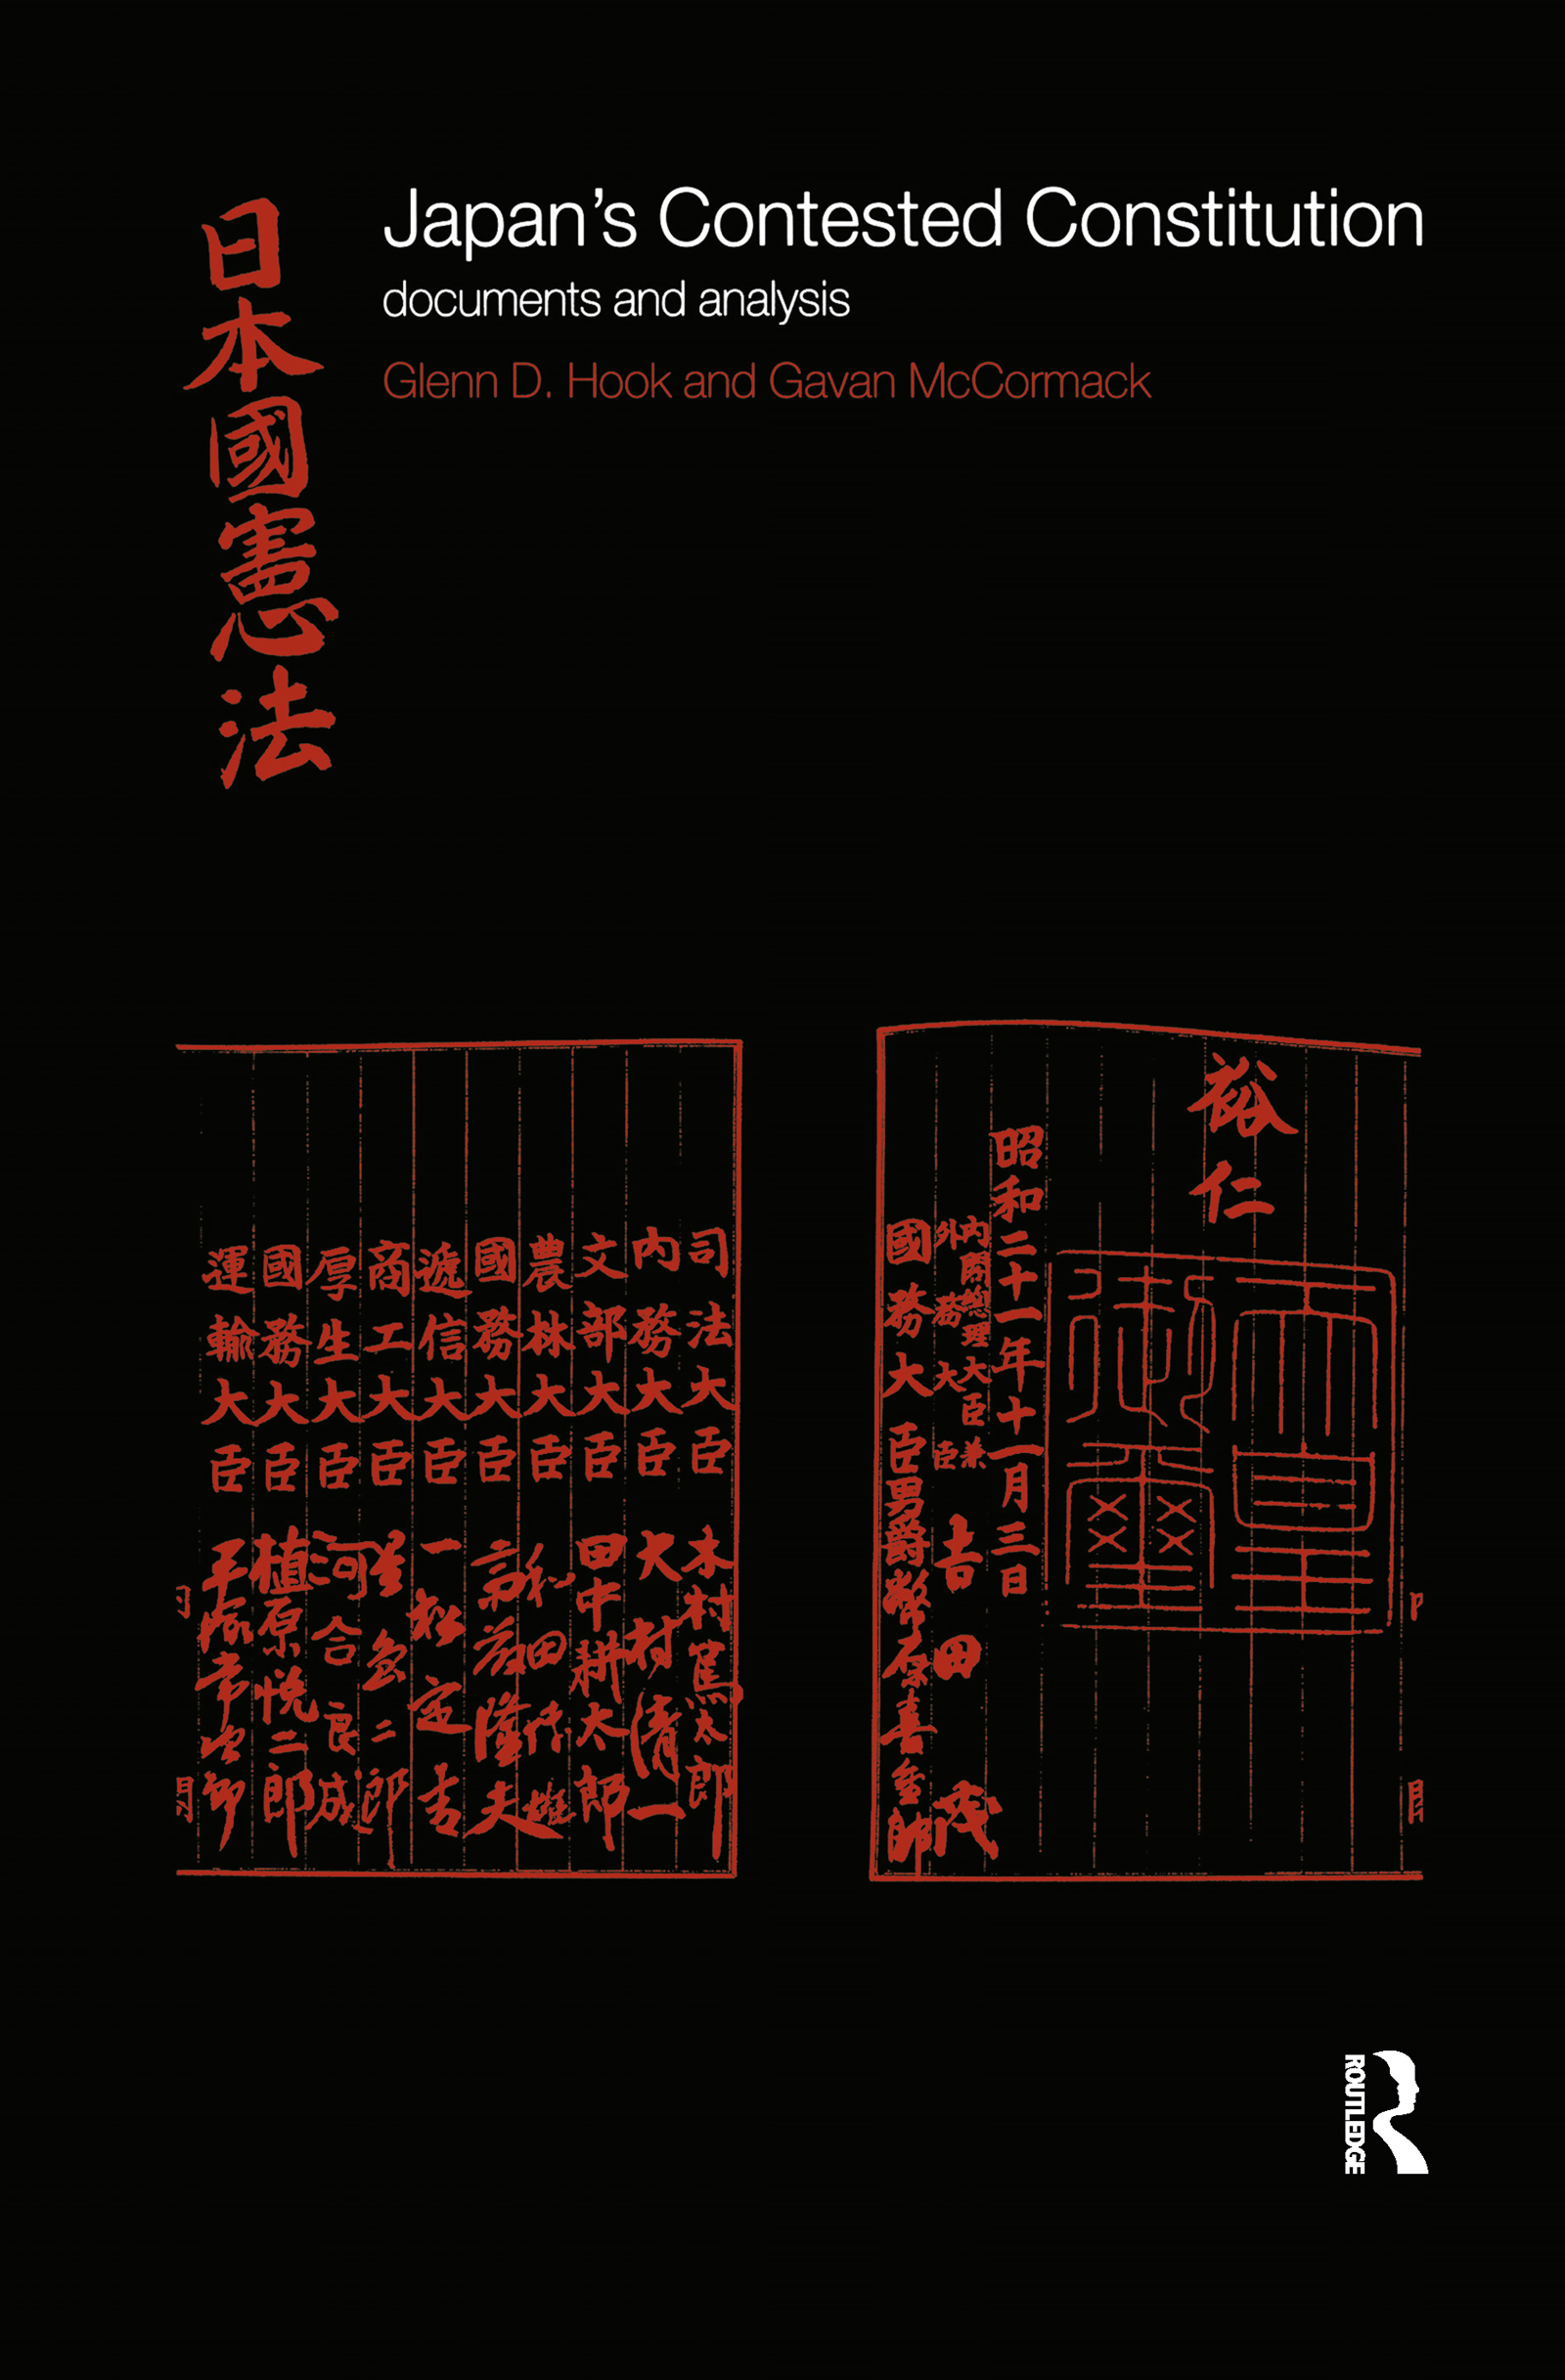 日本國憲法
Japan's Contested Constitution
documents and analysis
Glenn D. Hook and Gavan McCormack
裕仁
天皇
御璽
昭和二十一年十一月三日
内閣總理大臣兼
外務大臣 吉田茂
國務大臣男爵幣原喜重郎
司法大臣 木村篤太郎
内務大臣 大村清一
文部大臣 田中耕太郎
農林大臣 和田博雄
國務大臣 斎藤隆夫
遞信大臣 一松定吉
商工大臣 星島二郎
厚生大臣 河合良成
國務大臣 植原悦二郎
運輸大臣 平塚常次郎
ROUTLEDGE